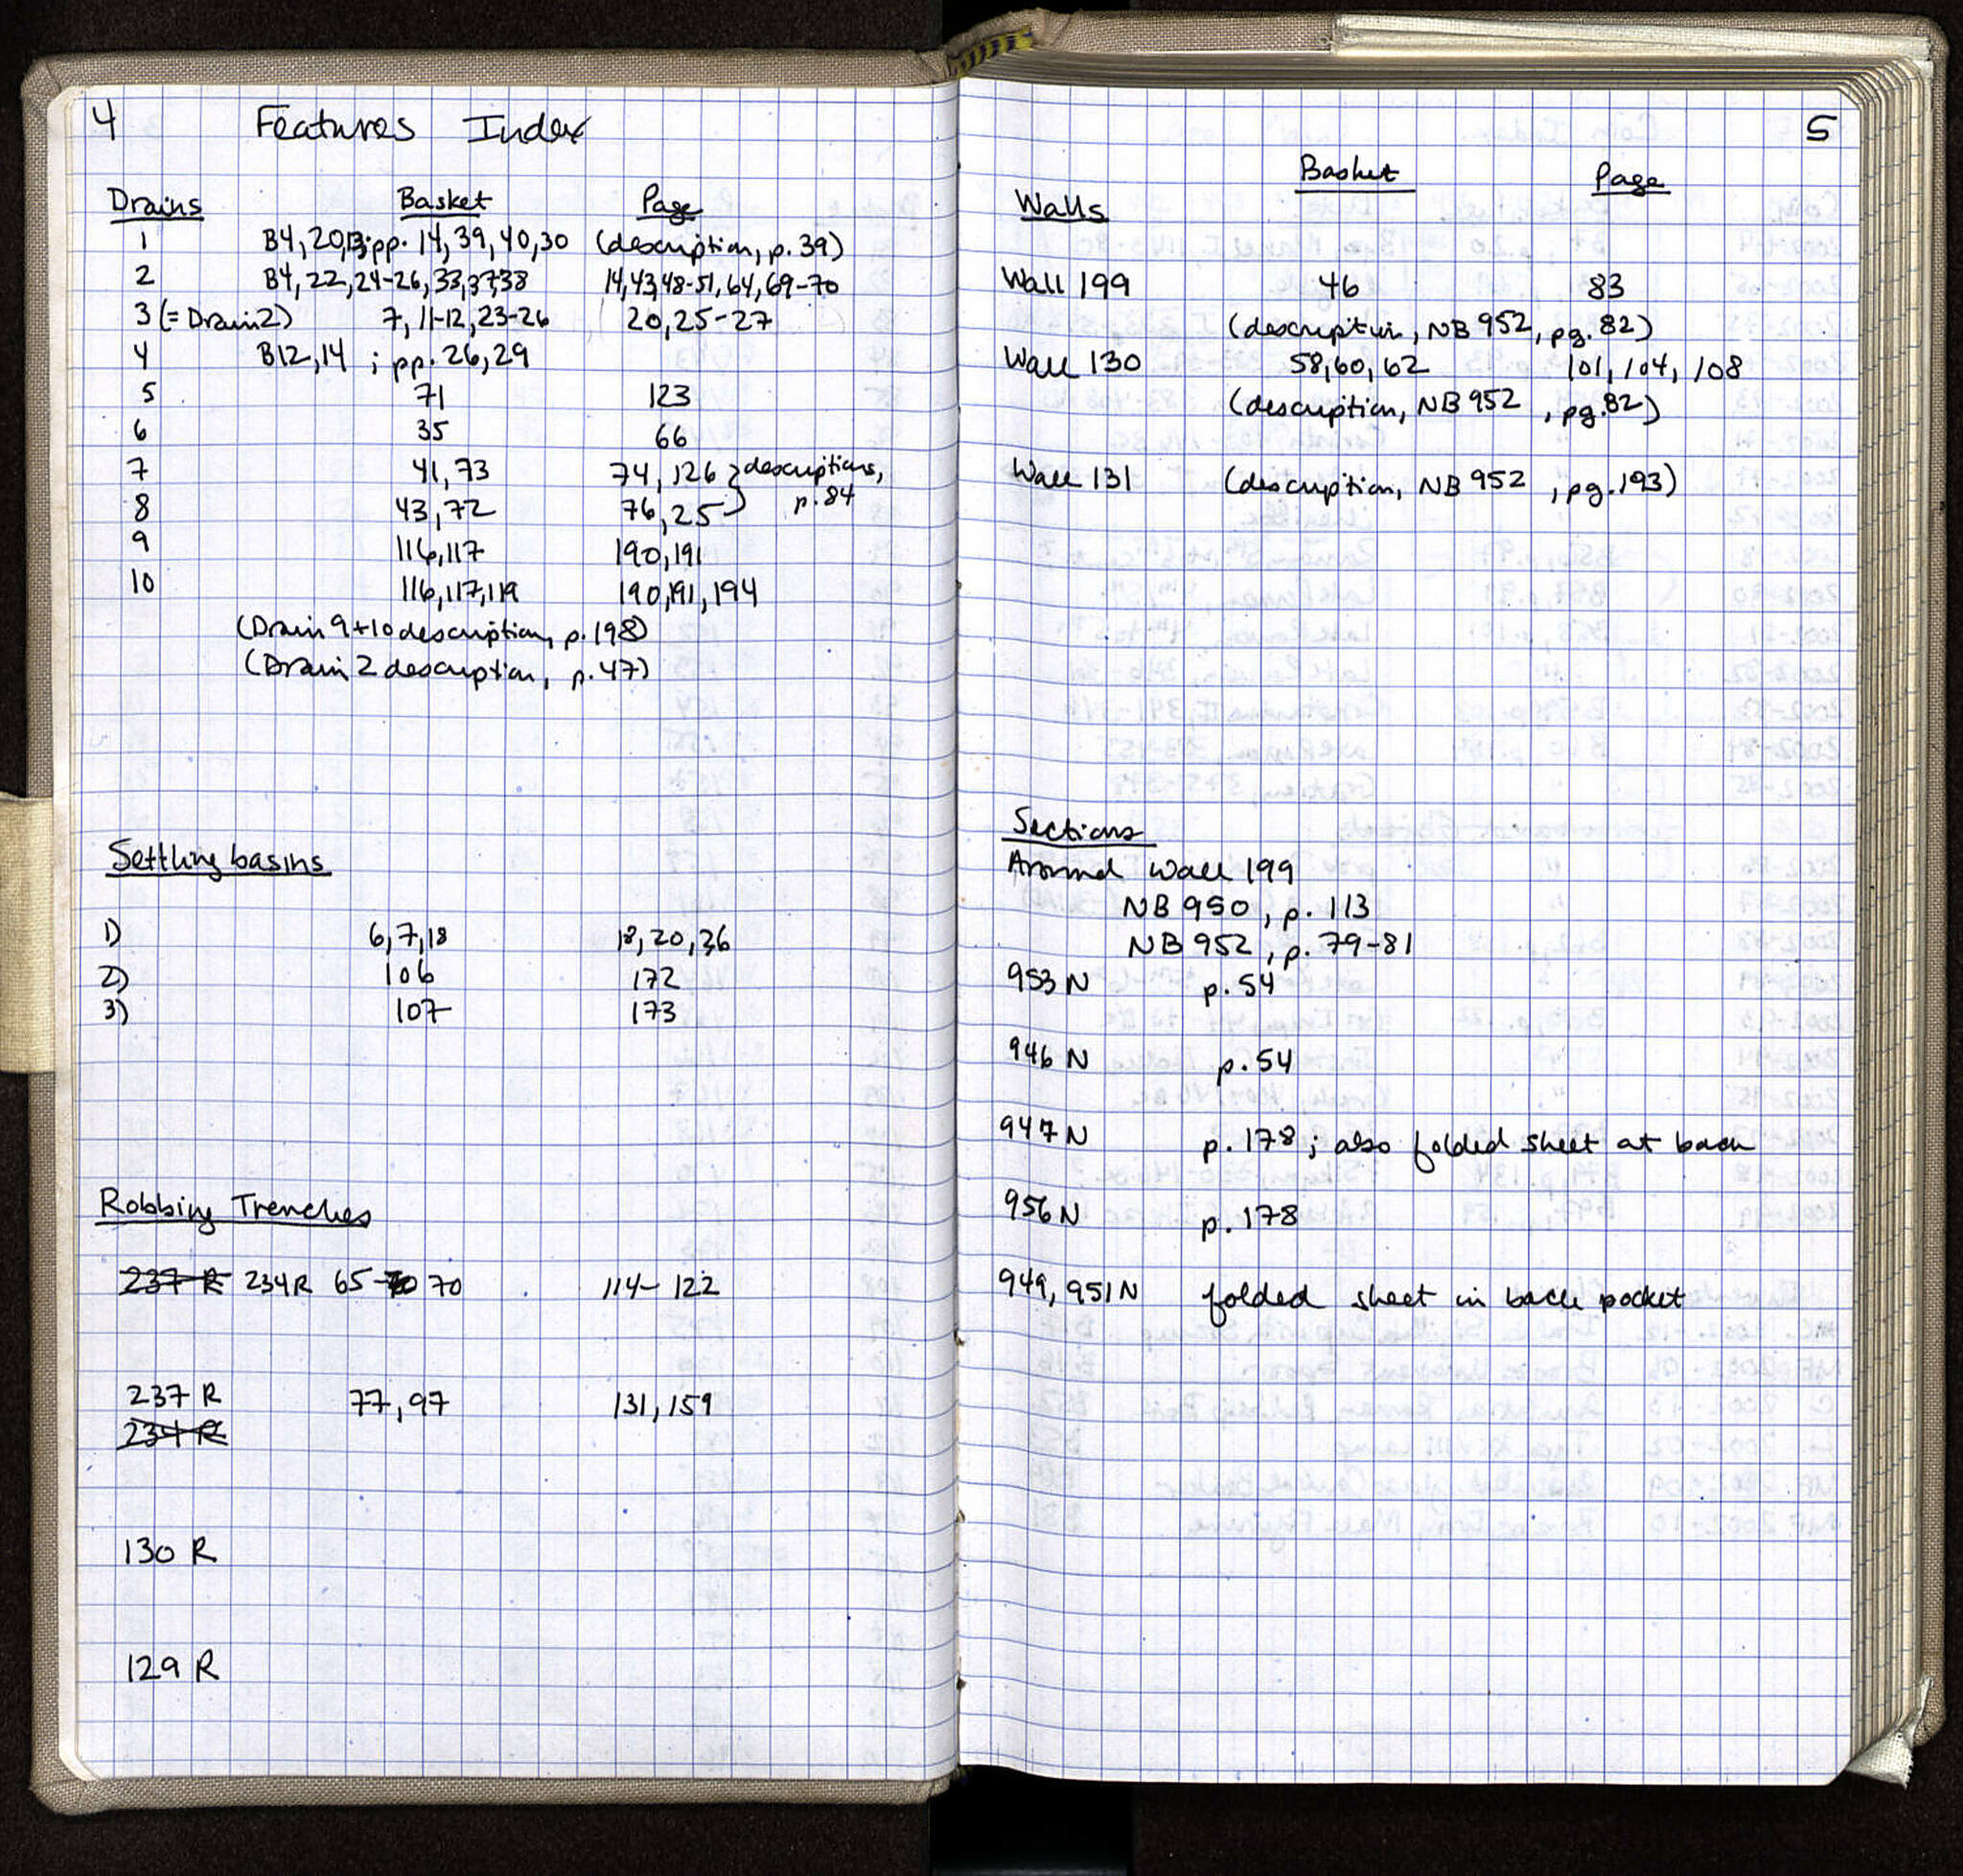 4 Features Index
Drains Basket Page
1 B4, 20, 13; pp. 14, 39, 40, 30 (description, p. 39)
2 B4, 22, 24-26, 33, 37, 38 14, 43, 48-51, 64, 69-70
3 (= Drain 2) 7, 11-12, 23-26 20, 25-27
4 B12, 14 ; pp. 26, 29
5 71 123
6 35 66
7 41, 73 74, 126 } descriptions,
8 43, 72 76, 25 p. 84
9 116, 117 190, 191
10 116, 117, 119 190, 191, 194
(Drain 9 + 10 description, p. 198)
(Drain 2 description, p. 47)
Settling basins
1) 6, 7, 18 18, 20, 36
2) 106 172
3) 107 173
Robbing Trenches
237 R 234 R 65-70 70 114-122
237 R 77, 97 131, 159
234 R
130 R
129 R
5
Basket Page
Walls
Wall 199 46 83
(description, NB 952, pg. 82)
Wall 130 58, 60, 62 101, 104, 108
(description, NB 952, pg. 82)
Wall 131 (description, NB 952, pg. 193)
Sections
Around Wall 199
NB 950, p. 113
NB 952, p. 79-81
953 N p. 54
946 N p. 54
947 N p. 178 ; also folded sheet at back
956 N p. 178
949, 951 N folded sheet in back pocket